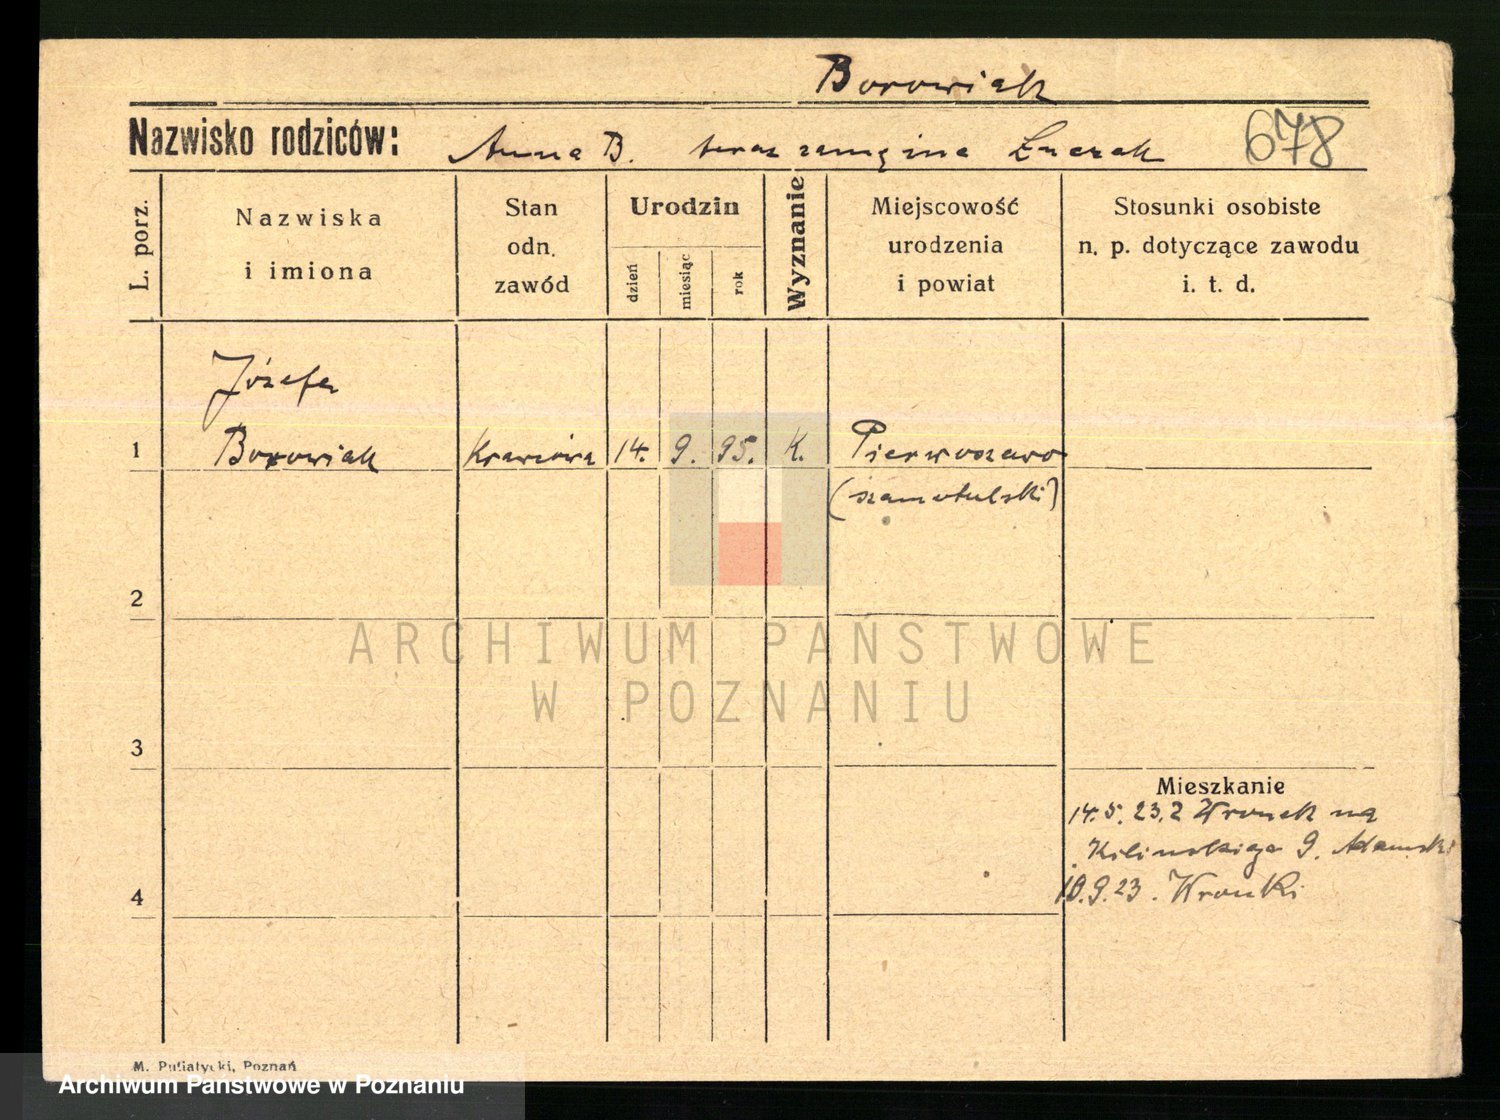 Borowiak
Nazwisko rodziców: Anna B. teraz zamężna Łuczak 678
L. porz.
Nazwiska
i imiona
Stan
odn.
zawód
Urodzin
dzień
miesiąc
rok
Wyznanie
Miejscowość
urodzenia
i powiat
Stosunki osobiste
n. p. dotyczące zawodu
i. t. d.
Józefa
1 Borowiak Krawcowa 14. 9. 95. K. Pierwoszewo
(szamotulski)
2
ARCHIWUM PAŃSTWOWE
W POZNANIU
3
Mieszkanie
14.5.23. z Wronek na
Kilinskiego 9. Adamski
4 10.9.23. Wronki
M. Putiatycki, Poznań
Archiwum Państwowe w Poznaniu